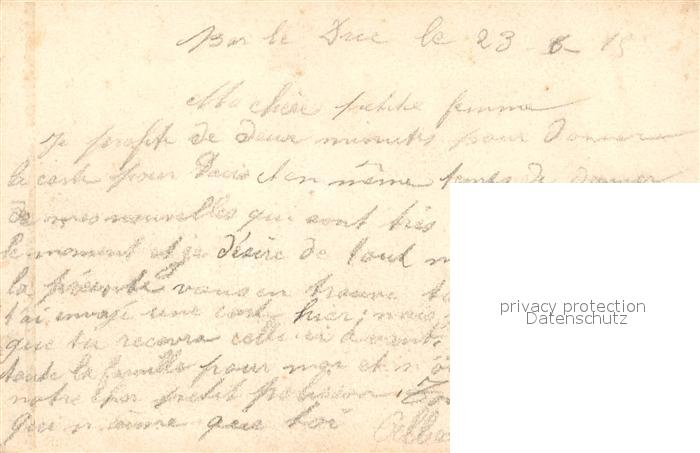 Bar le Duc le 23 - 6 - 15
Ma chère petite femme
Je profite de deux minutes pour donner
la carte pour Denis et en même temps te donner
de mes nouvelles qui sont très
le moment et je désire de tout m
la présente vous en trouve
t'ai envoyé une carte hier; mais
que tu recevra celle ci avant.
toute la famille pour moi et n'ou
notre cher petit polisson
qui n'aime que toi Alb
privacy protection
Datenschutz